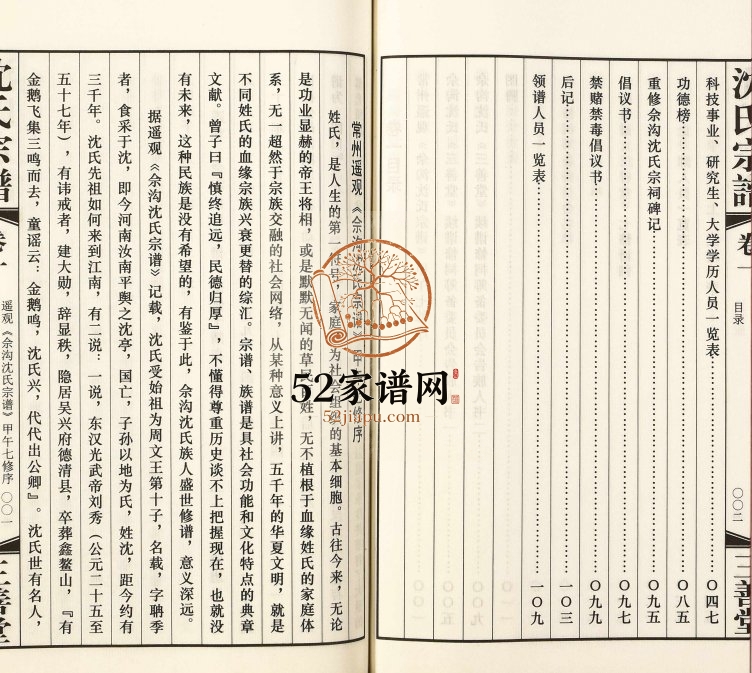 沈氏宗譜
卷一
目录
〇〇二
三善堂
科技事业、研究生、大学学历人员一览表……〇四七
功德榜……〇八五
重修佘沟沈氏宗祠碑记……〇九五
倡议书……〇九七
禁赌禁毒倡议书……〇九九
后记……一〇三
领谱人员一览表……一〇九
常州遥观《佘沟沈氏宗谱》修序
姓氏，是人生的第一号，家庭为社会组织的基本细胞。古往今来，无论
是功业显赫的帝王将相，或是默默无闻的草民百姓，无不植根于血缘姓氏的家庭体
系，无一超然于宗族交融的社会网络，从某种意义上讲，五千年的华夏文明，就是
不同姓氏的血缘宗族兴衰更替的综汇。宗谱、族谱是具社会功能和文化特点的典章
文献。曾子曰『慎终追远，民德归厚』，不懂得尊重历史谈不上把握现在，也就没
有未来，这种民族是没有希望的，有鉴于此，佘沟沈氏族人盛世修谱，意义深远。
据遥观《佘沟沈氏宗谱》记载，沈氏受始祖为周文王第十子，名载，字聃季
者，食采于沈，即今河南汝南平舆之沈亭，国亡，子孙以地为氏，姓沈，距今约有
三千年。沈氏先祖如何来到江南，有二说：一说，东汉光武帝刘秀（公元二十五至
五十七年），有讳戒者，建大勋，辞显秩，隐居吴兴府德清县，卒葬鑫鳌山，『有
金鹅飞集三鸣而去，童谣云：金鹅鸣，沈氏兴，代代出公卿』。沈氏世有名人，
沈氏宗譜
卷一
遥观《佘沟沈氏宗谱》甲午七修序
〇〇一
三善堂
52家谱网
52jiapu.com